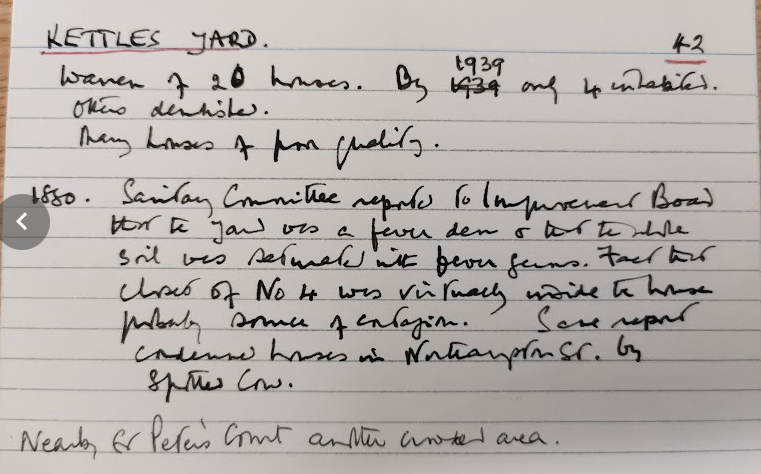 KETTLES YARD. 42
Warren of 20 houses. By 1939 only 4 inhabited.
Others demolished.
Many houses of poor quality.
1880. Sanitary Committee reported to Improvement Board
that the yard was a fever den & that the whole
soil was saturated with fever germs. Fact that
closet of No 4 was virtually inside the house
probably source of contagion. Same report
condemned houses in Northampton St. by
Spotted Cow.
Nearby St Peter's Court another crowded area.